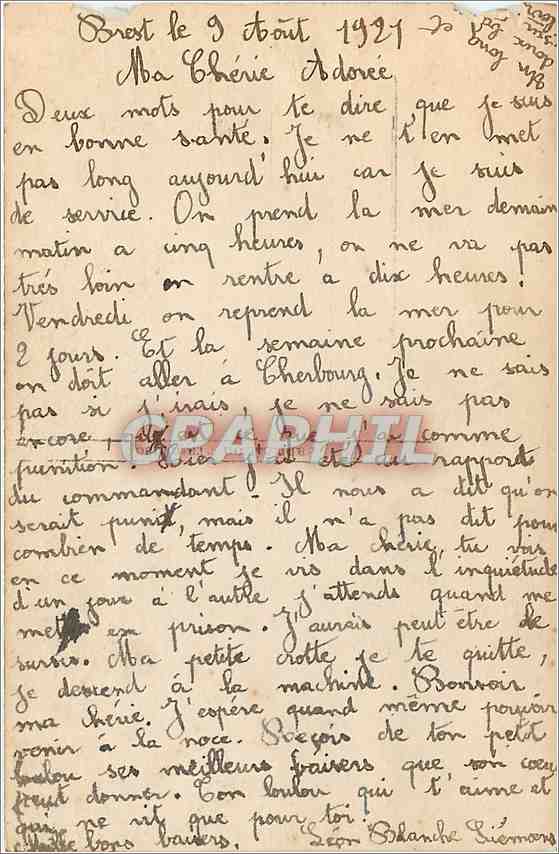 Brest le 9 Août 1921
Ma Chérie Adorée
Deux mots pour te dire que je suis
en bonne santé. Je ne t'en met
pas long aujourd'hui car je suis
de service. On prend la mer demain
matin a cinq heures, on ne va pas
trés loin on rentre a dix heures.
Vendredi on reprend la mer pour
2 jours. Et la semaine prochaine
on dôit aller à Cherbourg. Je ne sais
pas si j'irais, je ne sais pas
encore, que j'ai comme
punition. Hier j'ai été au rapport
du commandant. Il nous a dit qu'on
serait punit, mais il n'a pas dit pour
combien de temps. Ma chérie, tu vois
en ce moment je vis dans l'inquiétude
d'un jour à l'autre j'attends quand me
met en prison. J'aurais peut être de
sursis. Ma petite crotte je te quitte,
je descend à la machine. Bonsoir
ma chérie. J'espére quand même pouvoir
venir à la noce. Reçois de ton petit
loulou ses meilleurs baisers que son coeur
peut donner. Ton loulou qui t'aime et
qui ne vit que pour toi.
Mille bons baisers. Léon Blanche
Un long
doux
sur
CRAPHIL